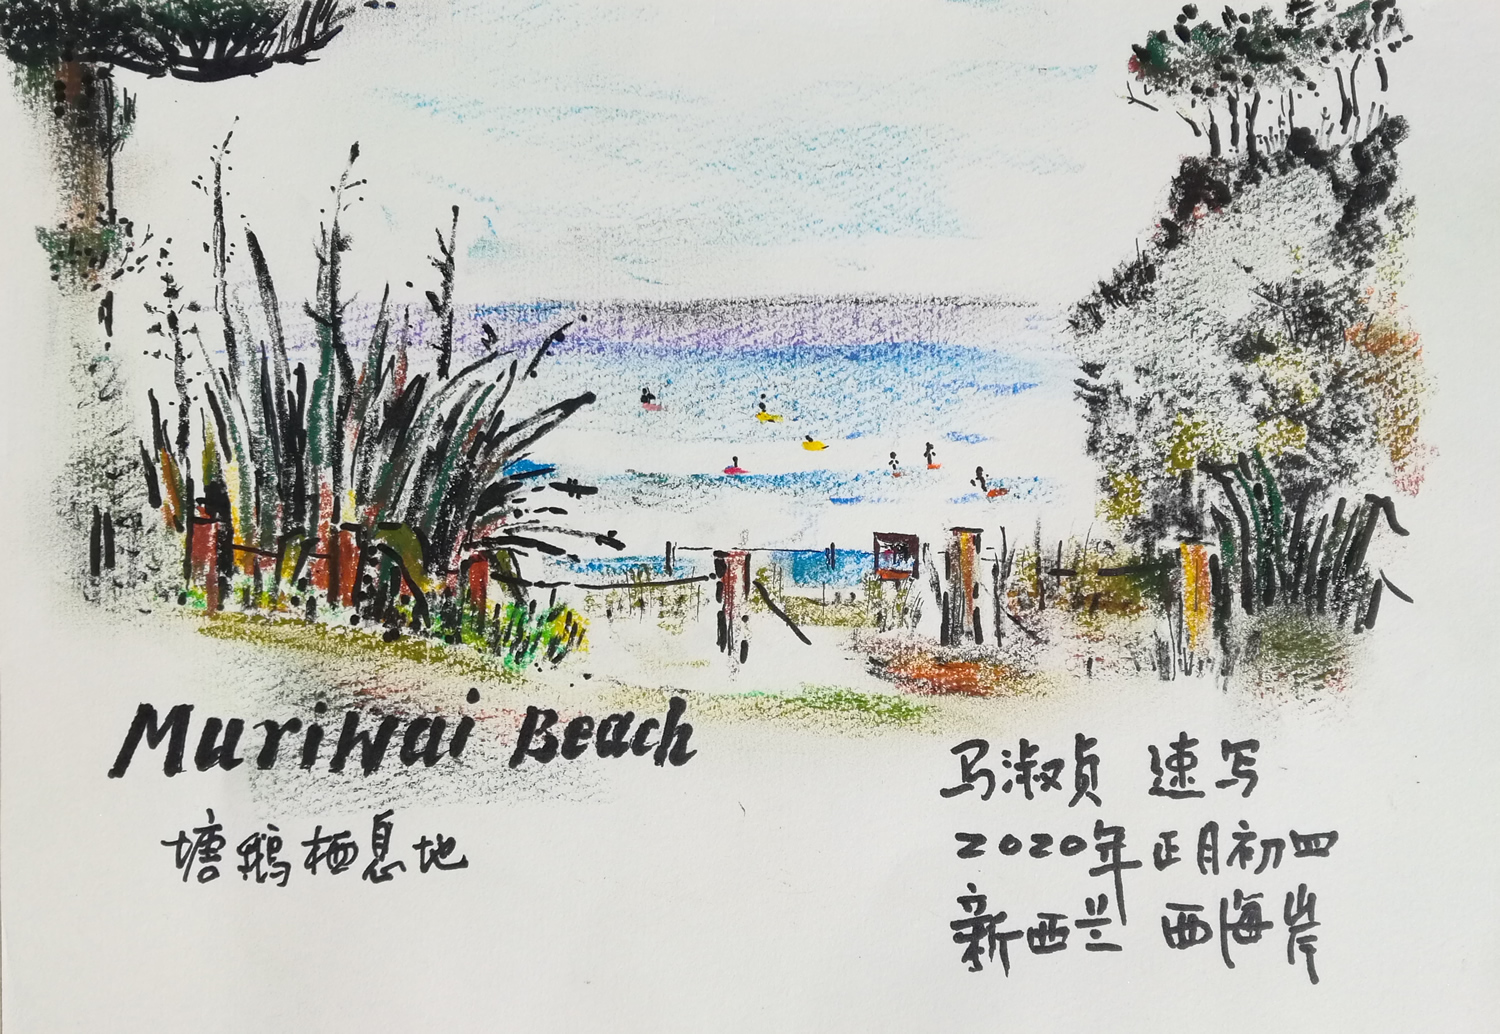 Muriwai Beach
塘鹅栖息地
马淑贞 速写
2020年正月初四
新西兰 西海岸